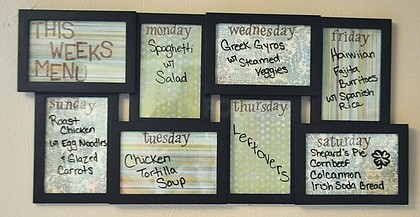 THIS
WEEKS
MENU
monday
Spaghetti
w/
Salad
wednesday
Greek Gyros
w/ Steamed
Veggies
friday
Hawiian
Fajita
Burritoes
w/ Spanish
Rice
sunday
Roast
Chicken
w/ Egg Noodles
& Glazed
Carrots
tuesday
Chicken
Tortilla
Soup
thursday
Leftovers
saturday
Shepard's Pie
Cornbeef
Colcannon
Irish Soda Bread